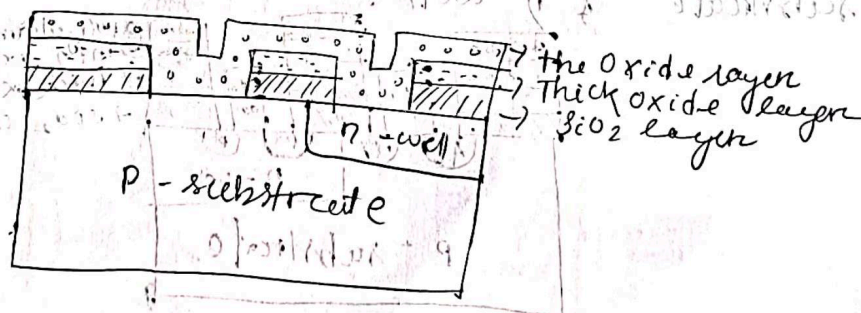 the Oxide layer
Thick Oxide layer
SiO2 layer
n-well
P-substrate